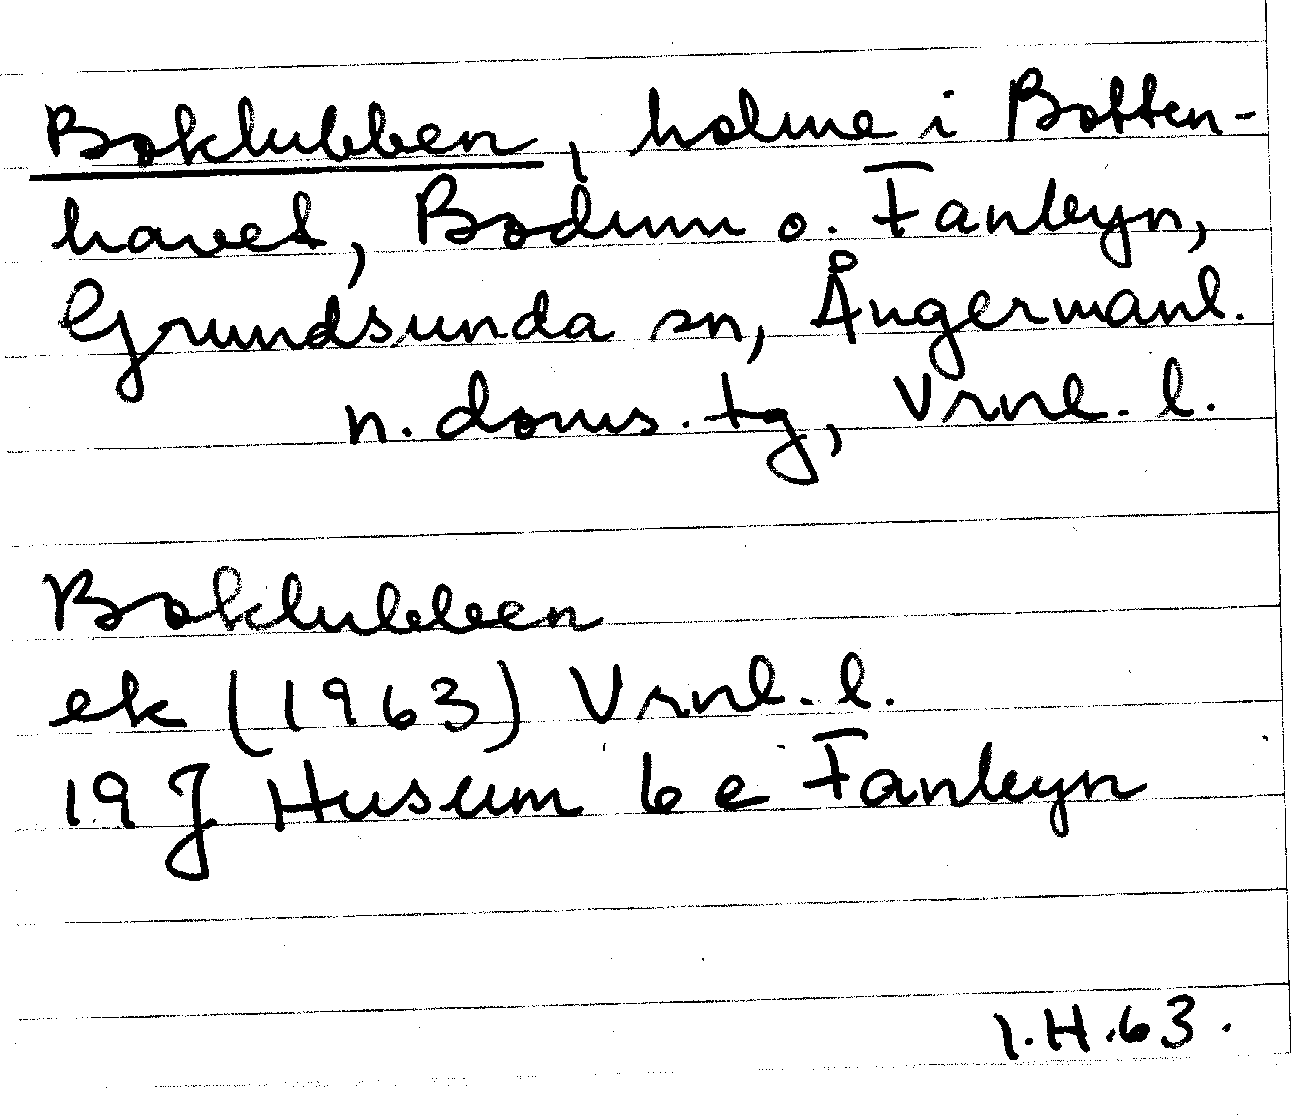 Boklubben, holme i Botten-
havet, Bodum o. Fanbyn,
Grundsunda sn, Ångermanl.
n. doms. tg, Vrnl. l.
Boklubben
ek (1963) Vrnl. l.
19 J Husum 6 e Fanbyn
I.H.63.